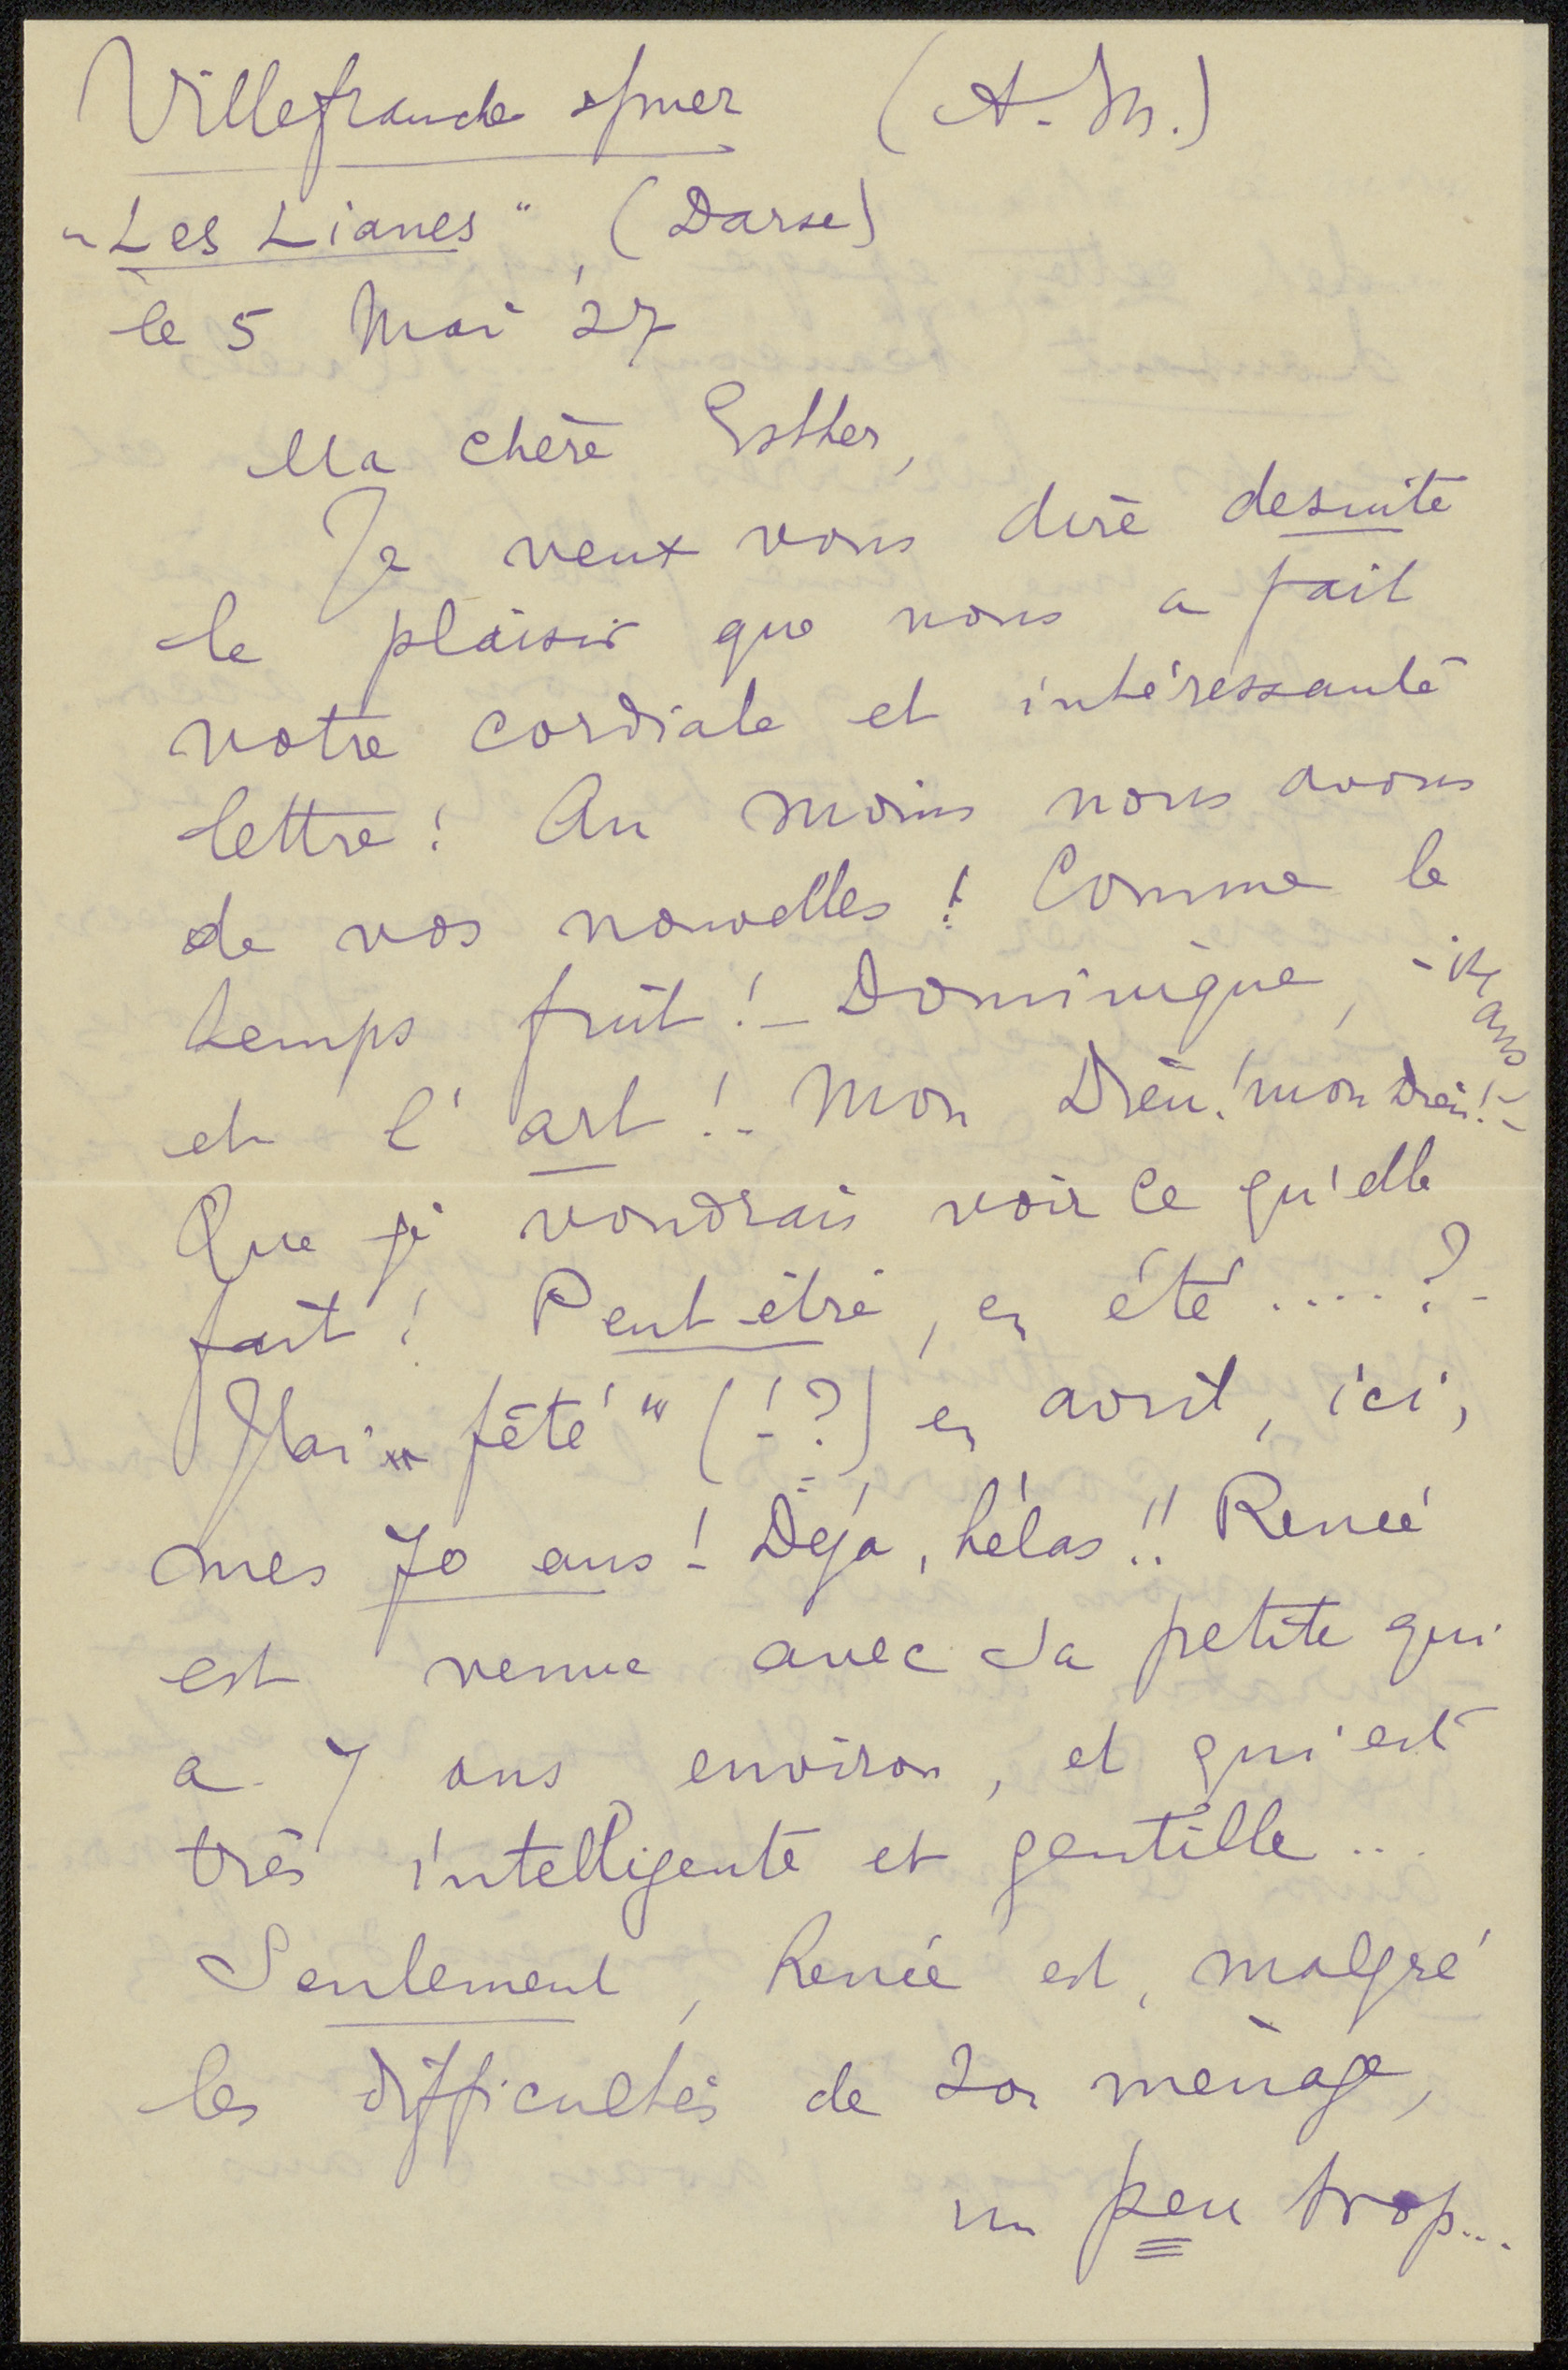 Villefranche s/mer (A.-M.)
„Les Lianes" (Darse)
le 5 Mai '27
Ma chère Esther,
Je veux vous dire desuite
le plaisir que nous a fait
votre cordiale et intéressante
lettre! Au moins nous avons
de vos nouvelles! Comme le
temps fuit! — Dominique, -
ans
et l'art! - Mon Dieu! mon Dieu! -
Que je voudrais voir ce qu'elle
fait! Peut-être, en été ....?-
J'ai „fêté" (!?) en avril, ici,
mes 70 ans! Déjà, hélas!! Renée
est venue avec sa petite qui
a 7 ans environ, et qui est
très intelligente et gentille ...
Seulement, Renée est, malgré
les difficultés de son ménage,
un peu trop...